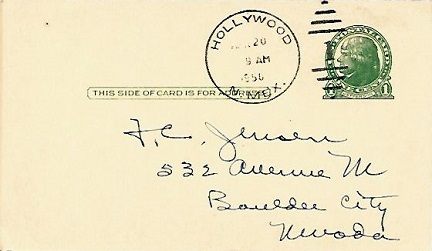 HOLLYWOOD
20
9 AM
N. MEX.
THIS SIDE OF CARD IS FOR
1
F.C. Jensen
532 Avenue M
Boulder City
Nevada